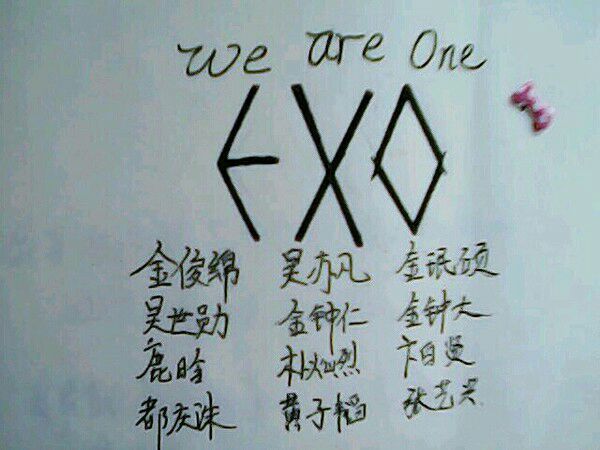 We are One
EXO
金俊绵 吴亦凡 金珉硕
吴世勋 金钟仁 金钟大
鹿晗 朴灿烈 卞白贤
都庆洙 黄子韬 张艺兴